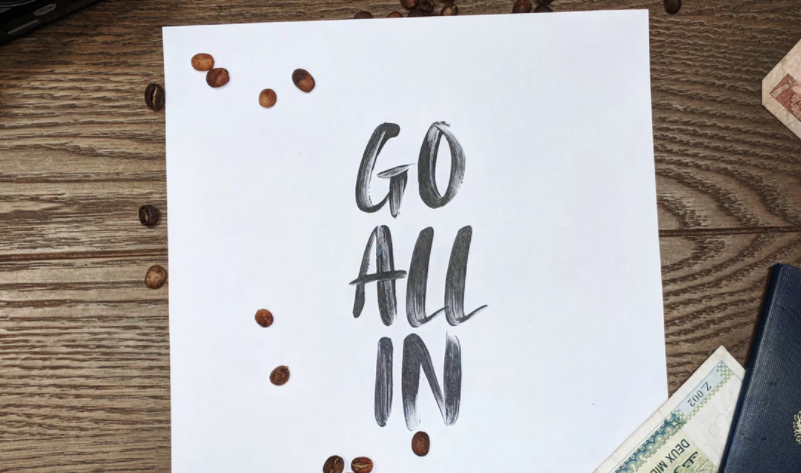 GO
ALL
IN
Z.002
DEUX MI